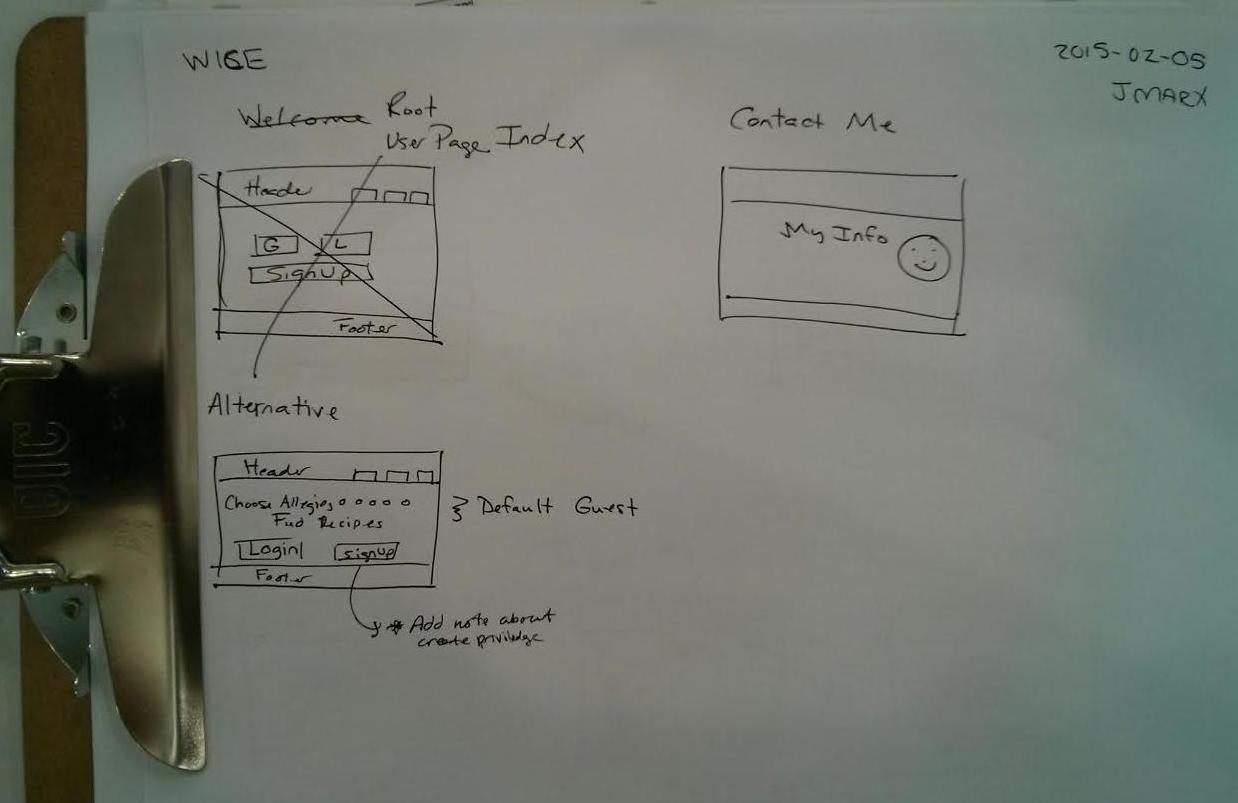 WIGE
2015-02-05
JMARX
Welcome Root
User Page Index
Header
G L
SignUp
Footer
Contact Me
My Info
Alternative
Header
Choose Allergies
Find Recipes
Login SignUp
Footer
Default Guest
* Add note about
create priviledge
OIC